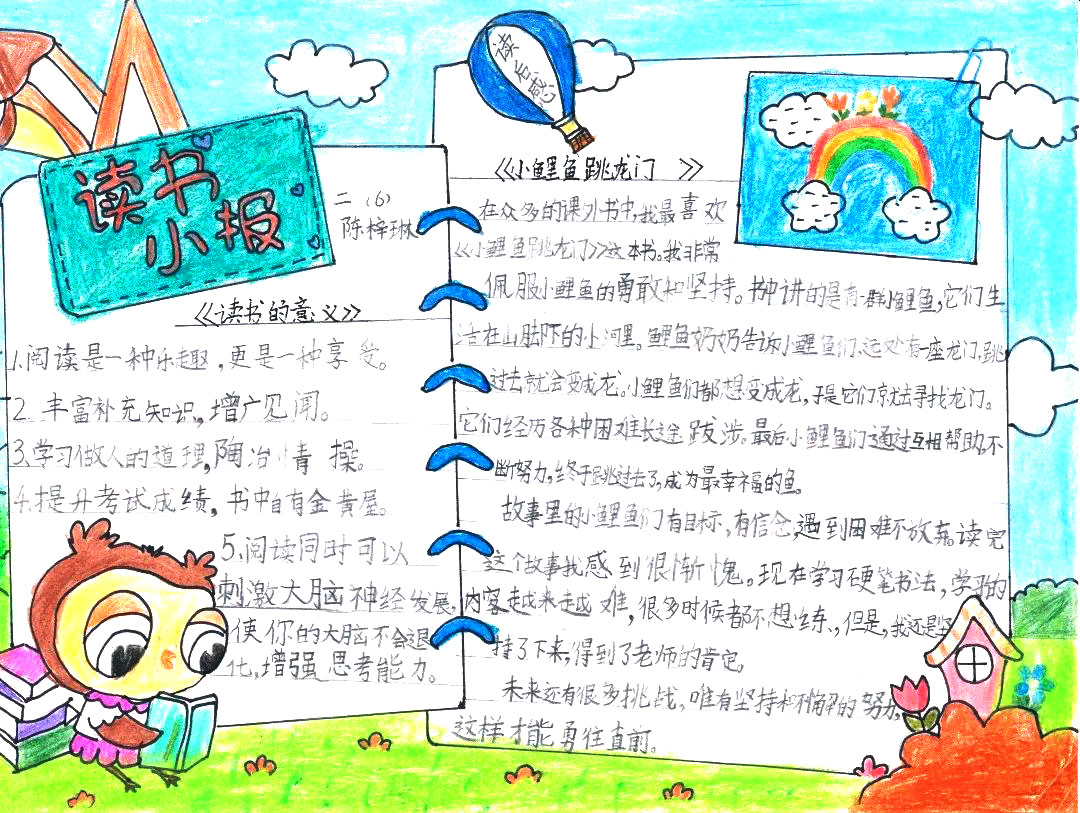 读书
小报
二（6）
陈梓琳
《读书的意义》
1.阅读是一种乐趣，更是一种享受。
2.丰富补充知识，增广见闻。
3.学习做人的道理，陶冶情操。
4.提升考试成绩，书中自有金黄屋。
5.阅读同时可以
刺激大脑神经发展，
使你的大脑不会退
化，增强思考能力。
读后感
《小鲤鱼跳龙门》
在众多的课外书中，我最喜欢
《小鲤鱼跳龙门》这本书。我非常
佩服小鲤鱼的勇敢和坚持。书中讲的是有一群小鲤鱼，它们生
活在山脚下的小河里。鲤鱼奶奶告诉小鲤鱼们，远处有一座龙门，跳
过去就会变成龙。小鲤鱼们都想变成龙，于是它们就去寻找龙门。
它们经历各种困难长途跋涉，最后小鲤鱼们通过互相帮助，不
断努力，终于跳过去了，成为最幸福的鱼。
故事里的小鲤鱼们有目标，有信念，遇到困难不放弃。读完
这个故事我感到很惭愧。现在学习硬笔书法，学习的
内容越来越难，很多时候都不想练，但是，我还是坚
持了下来，得到了老师的肯定。
未来还有很多挑战，唯有坚持和不懈的努力，
这样才能勇往直前。